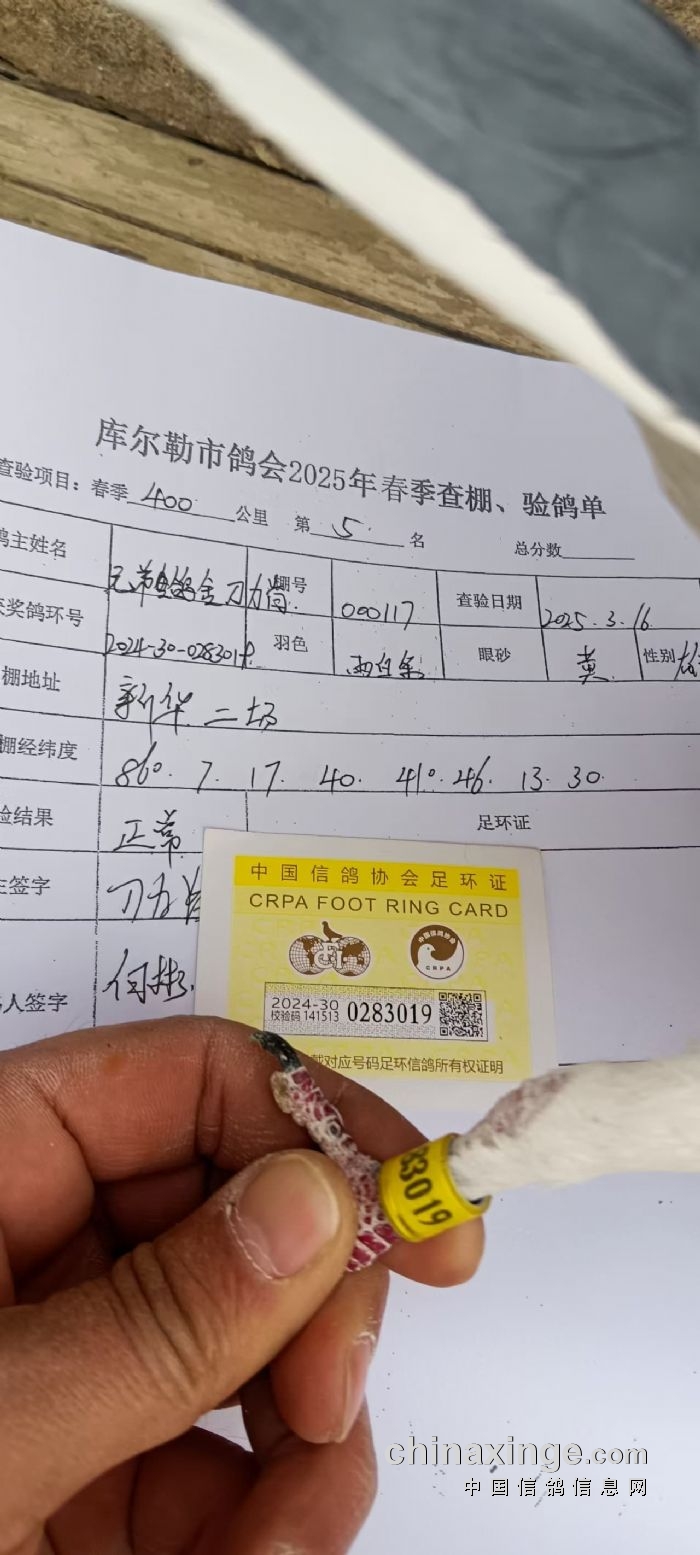 库尔勒市鸽会2025年春季查棚、验鸽单
查验项目：春季 400 公里 第 5 名 总分数
鸽主姓名 兄弟鸽舍刀力 棚号 000117 查验日期 2025.3.16
获奖鸽环号 2024-30-0283019 羽色 雨白条 眼砂 黄 性别 雄
棚地址 新华二场
棚经纬度 86°. 7. 17. 40. 41°. 46. 13. 30.
验结果 正常 足环证
主签字 刀力
人签字 何彬
中国信鸽协会足环证
CRPA FOOT RING CARD
中国信鸽协会
CRPA
2024-30
校验码 141513 0283019
戴对应号码足环信鸽所有权证明
83019
chinaxinge.com
中国信鸽信息网